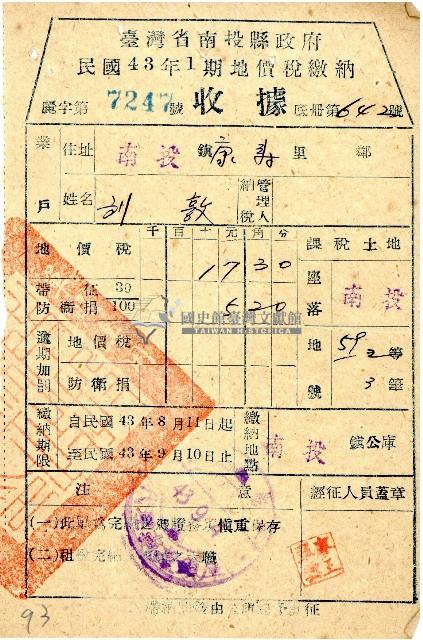 臺灣省南投縣政府
民國43年1期地價稅繳納
字第7247號 收據 底冊第642號
業戶 住址 南投 鎮 康壽 里 鄰
姓名 劉 敦 管理人 納稅
千百十元角分 課稅土地
地價稅 17 30 座落 南投
帶征 30
防衛捐 100 5 20
國史館臺灣文獻館
TAIWAN HISTORICA
逾期加罰 地價稅 地號 59 2 等
防衛捐 3 筆
繳納期限 自民國43年8月11日起 繳納地點 南投 鎮公庫
至民國43年9月10日止
注意 經征人員蓋章
(一)此單為完納之憑證務須慎重保存
(二)租稅完納
93